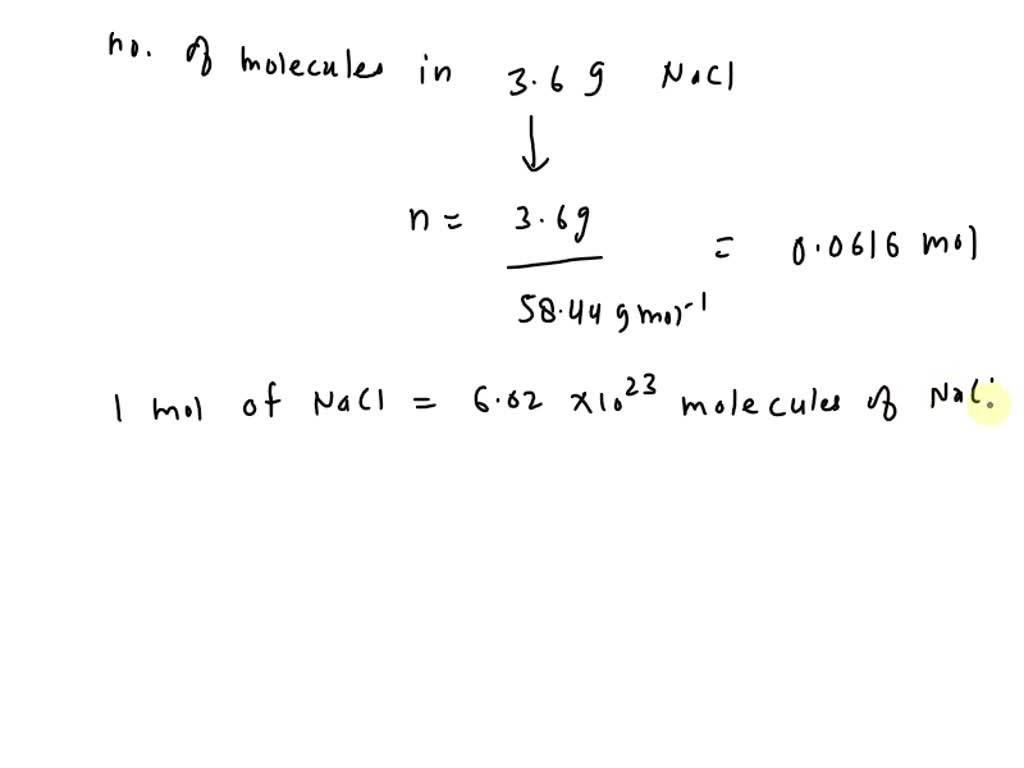 no. of molecules in 3.6 g NaCl
↓
n = 3.6g / 58.44 g mol⁻¹ = 0.0616 mol
1 mol of NaCl = 6.02 ×10²³ molecules of NaCl